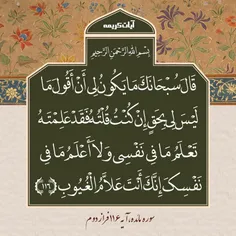 آیات کریمه
بِسْمِ اللهِ الرَّحْمنِ الرَّحيمِ
قَالَ سُبْحَانَكَ مَا يَكُونُ لِي أَنْ أَقُولَ مَا
لَيْسَ لِي بِحَقٍّ إِنْ كُنْتُ قُلْتُهُ فَقَدْ عَلِمْتَهُ
تَعْلَمُ مَا فِي نَفْسِي وَلَا أَعْلَمُ مَا فِي
نَفْسِكَ إِنَّكَ أَنْتَ عَلَّامُ الْغُيُوبِ ﴿١١٦﴾
سوره مائده، آیه ۱۱۶ فراز دوم